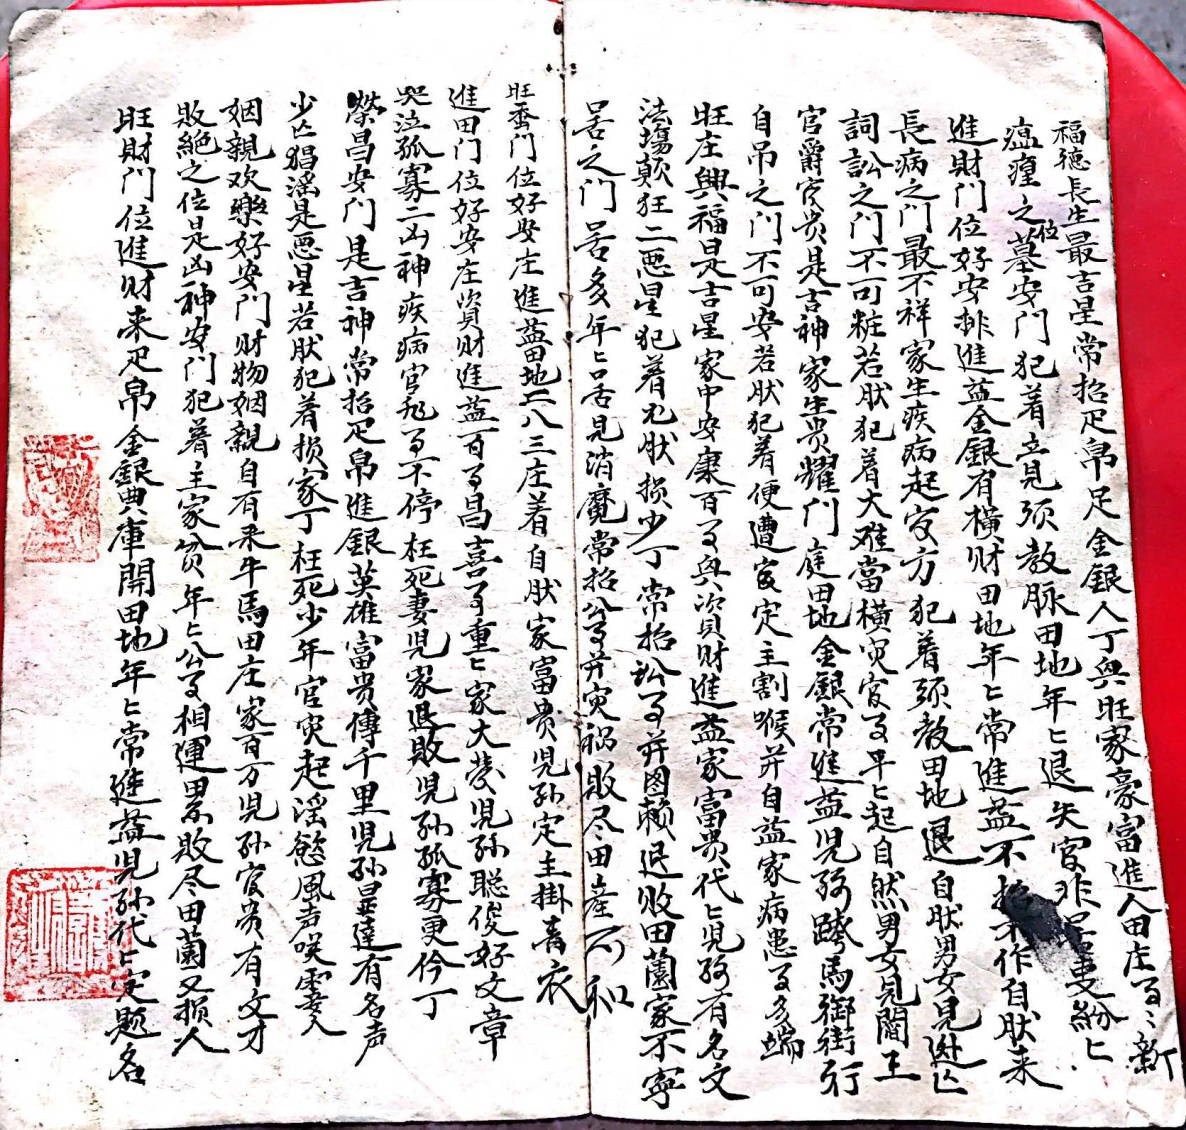 福德長生最吉星常招疋帛足金銀人丁興旺家豪富進人田庄事〻新
瘟瘟之位墓安門犯着立見須教脉田地年〻退失官非紛〻
進財門位好安排進益金銀有横財田地年〻常進益不招不作自肰来
長病之門最不祥家生疾病起官方犯着須教田地退自肰男女見逃亡
詞訟之門不可粧若肰犯着大难當横灾官事早〻起自然男女見閻王
官爵官贵是吉神家生贵耀門庭田地金銀常進益児孫跨馬御街行
自吊之門不可安若肰犯着便遭官定主割喉并自益家病患事多端
旺庄興福是吉星家中安康百事興資財進益家富贵代〻児孫有名文
法場颠狂二悪星犯着尤肰损少丁常招訟事并图赖退败田薗家不寧
罟之門罟多年〻口舌見消魔常招公事并灾祸败尽田産不和
旺蚕門位好安庄進益田地二八三庄着自肰家富贵児孙定主掛青衣
進田門位好安庄資财進益百事昌喜事重〻家大發児孙聪俊好文章
哭泣孤寡二凶神疾病官非事不停枉死妻児家退败児孙孤寡更伶丁
榮昌安門是吉神常招疋帛進銀英雄富贵傳千里児孙显達有名声
少亡猖滛是悪星若肰犯着损家丁枉死少年官灾起滛慾風声咲霎人
姻親欢樂好安門财物姻親自有来牛馬田庄家百万児孙官贵有文才
败絶之位是凶神安門犯着主家贫年〻公事相連累败尽田薗又损人
旺财門位進财来疋帛金銀典庫開田地年〻常進益児孙代〻定题名